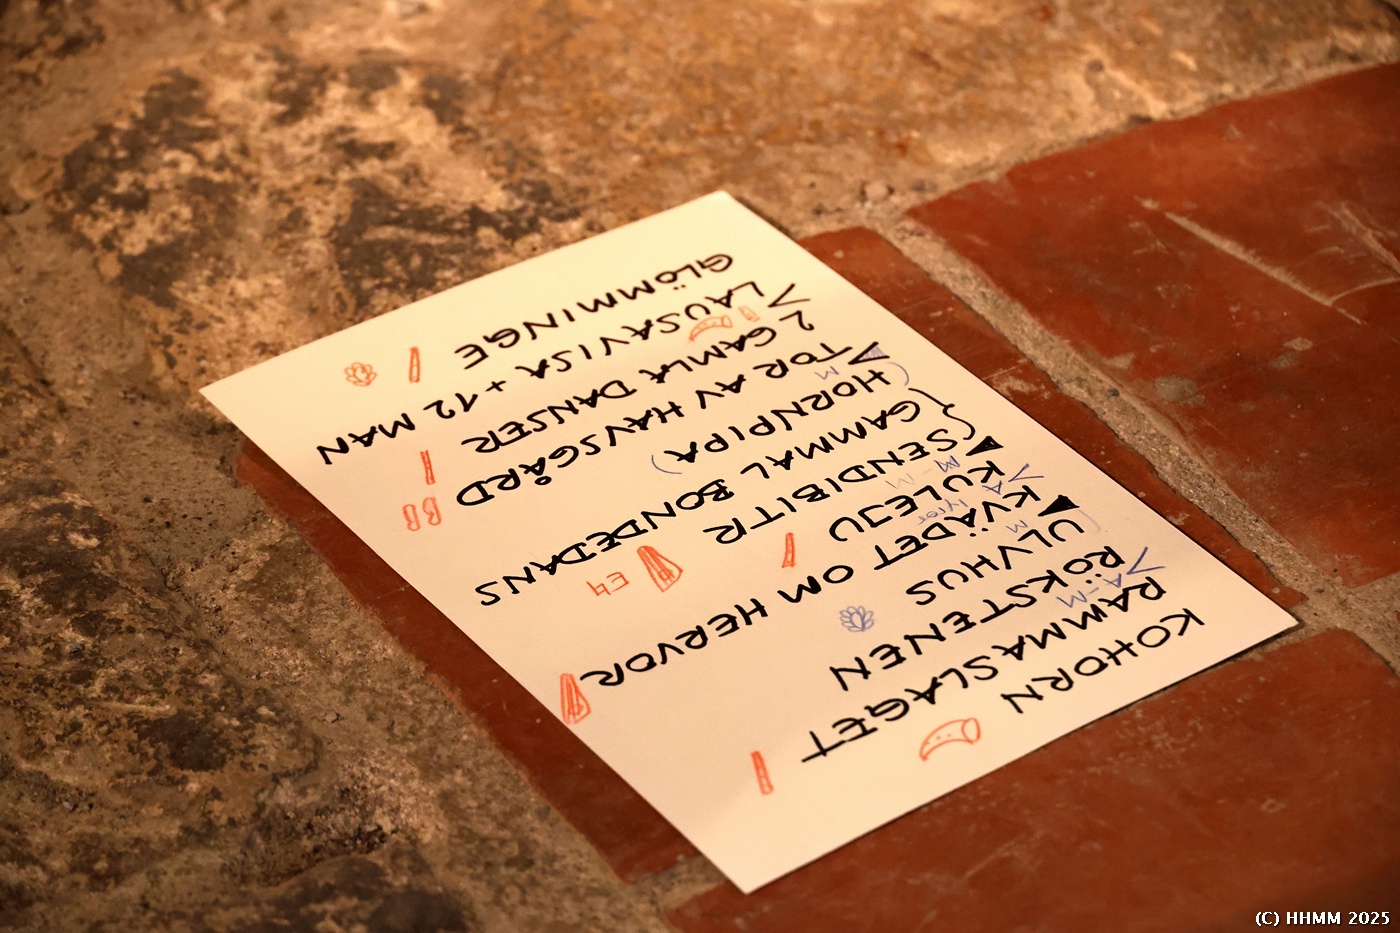 KOHORN
RAMMASLAGET
A-M
RÖKSTENEN
ULVHUS
M
KVÄDET OM HERVOR
A lyror
KULEJU
M
SENDIBITR
M
GAMMAL BONDEDANS E4
(HORNPIPA)
M
TOR AV HAVSGÅRD BB
2 GAMLA DANSER
LAUSAVISA + 12 MAN
GLÖMMINGE
(C) HHMM 2025